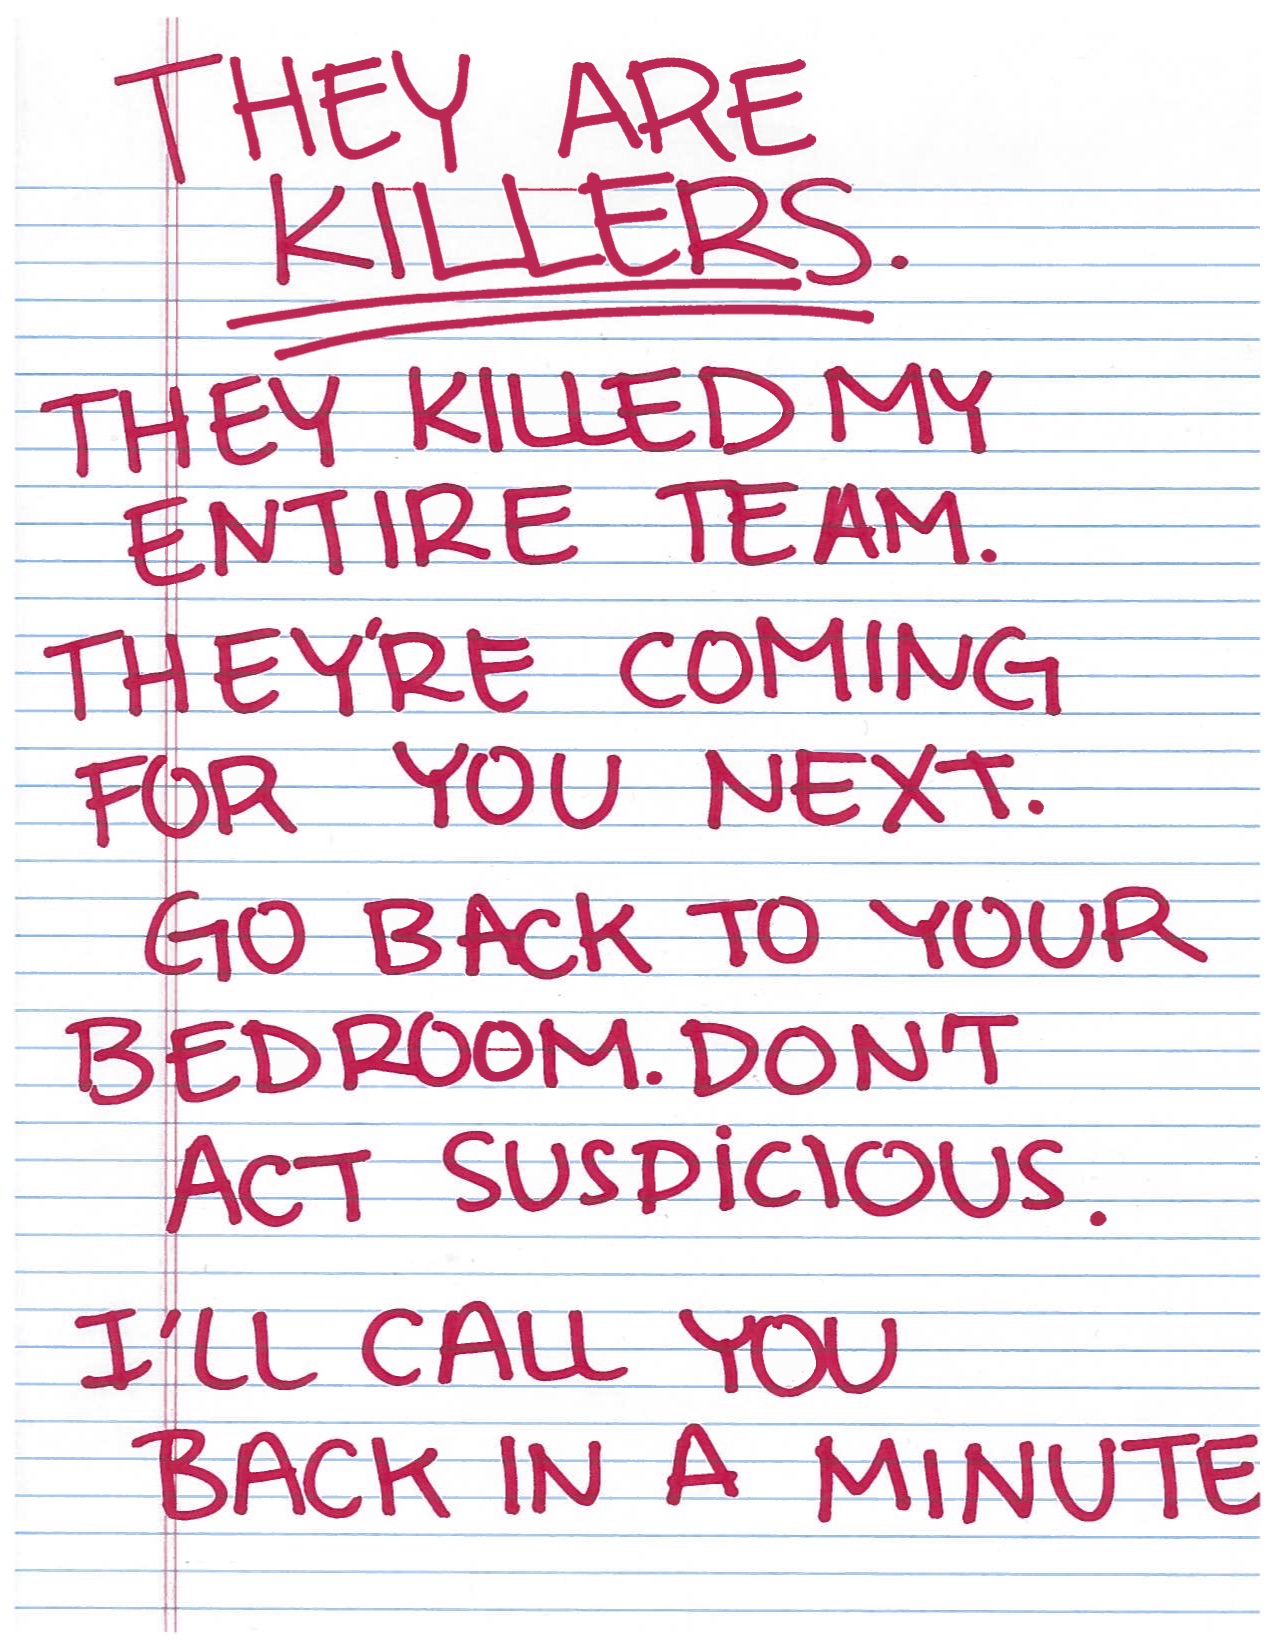 THEY ARE
KILLERS.
THEY KILLED MY
ENTIRE TEAM.
THEY'RE COMING
FOR YOU NEXT.
GO BACK TO YOUR
BEDROOM. DON'T
ACT SUSPiCIOUS.
I'LL CALL YOU
BACK IN A MINUTE